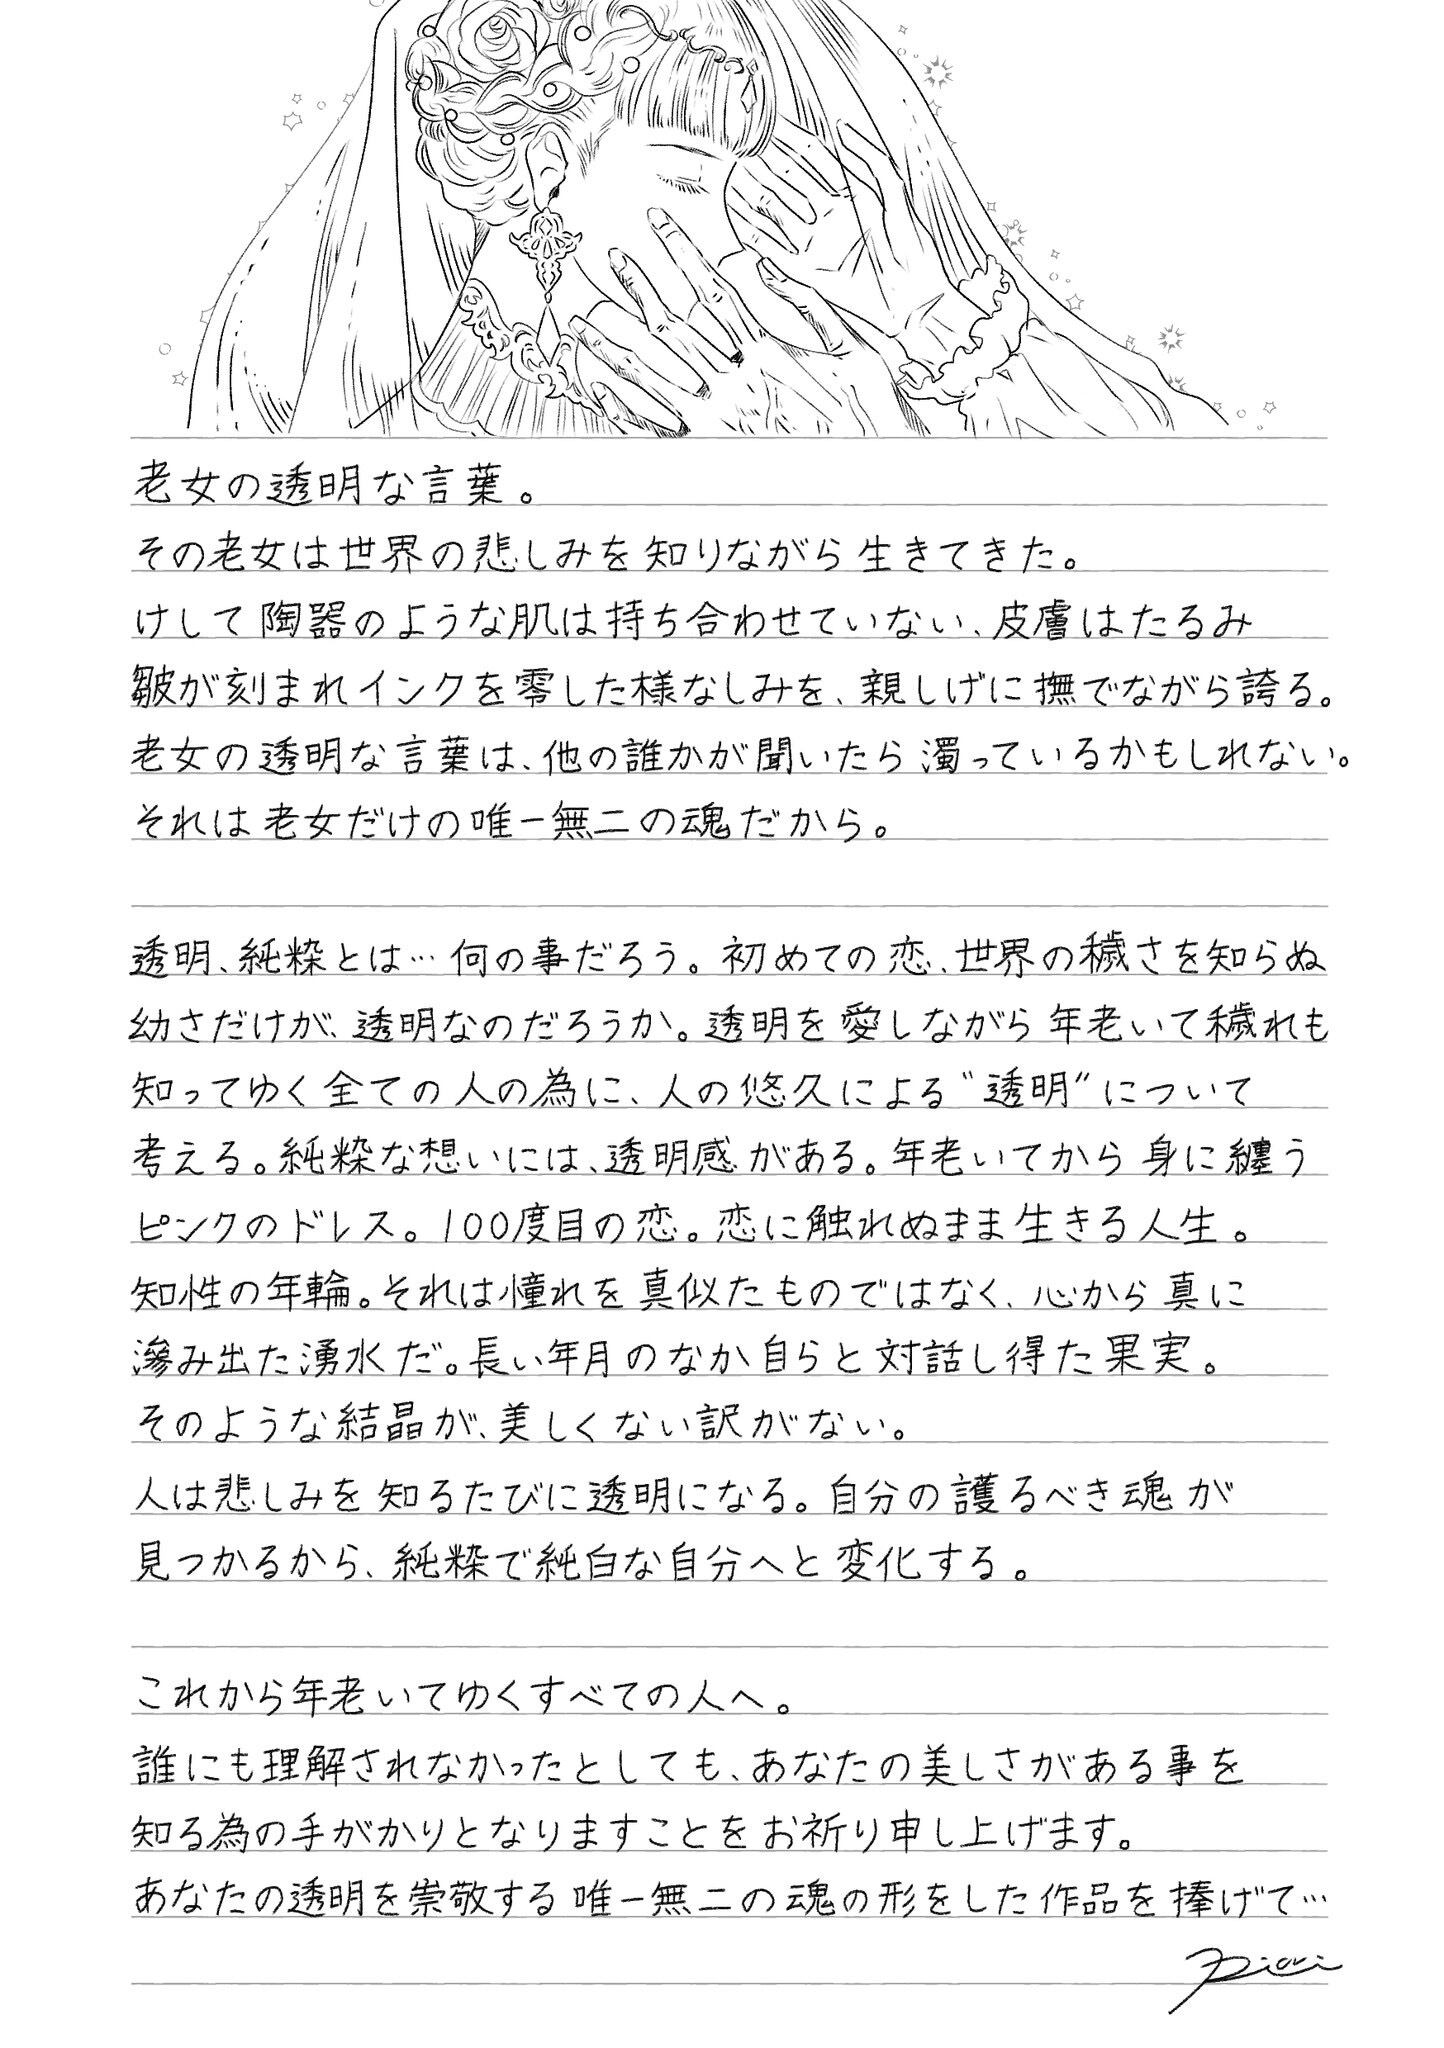 老女の透明な言葉。
その老女は世界の悲しみを知りながら生きてきた。
けして陶器のような肌は持ち合わせていない、皮膚はたるみ
皺が刻まれインクを零した様なしみを、親しげに撫でながら誇る。
老女の透明な言葉は、他の誰かが聞いたら濁っているかもしれない。
それは老女だけの唯一無二の魂だから。
透明、純粋とは…何の事だろう。初めての恋、世界の穢さを知らぬ
幼さだけが、透明なのだろうか。透明を愛しながら年老いて穢れも
知ってゆく全ての人の為に、人の悠久による“透明”について
考える。純粋な想いには、透明感がある。年老いてから身に纏う
ピンクのドレス。100度目の恋。恋に触れぬまま生きる人生。
知性の年輪。それは憧れを真似たものではなく、心から真に
滲み出た湧水だ。長い年月のなか自らと対話し得た果実。
そのような結晶が、美しくない訳がない。
人は悲しみを知るたびに透明になる。自分の護るべき魂が
見つかるから、純粋で純白な自分へと変化する。
これから年老いてゆくすべての人へ。
誰にも理解されなかったとしても、あなたの美しさがある事を
知る為の手がかりとなりますことをお祈り申し上げます。
あなたの透明を崇敬する唯一無二の魂の形をした作品を捧げて…